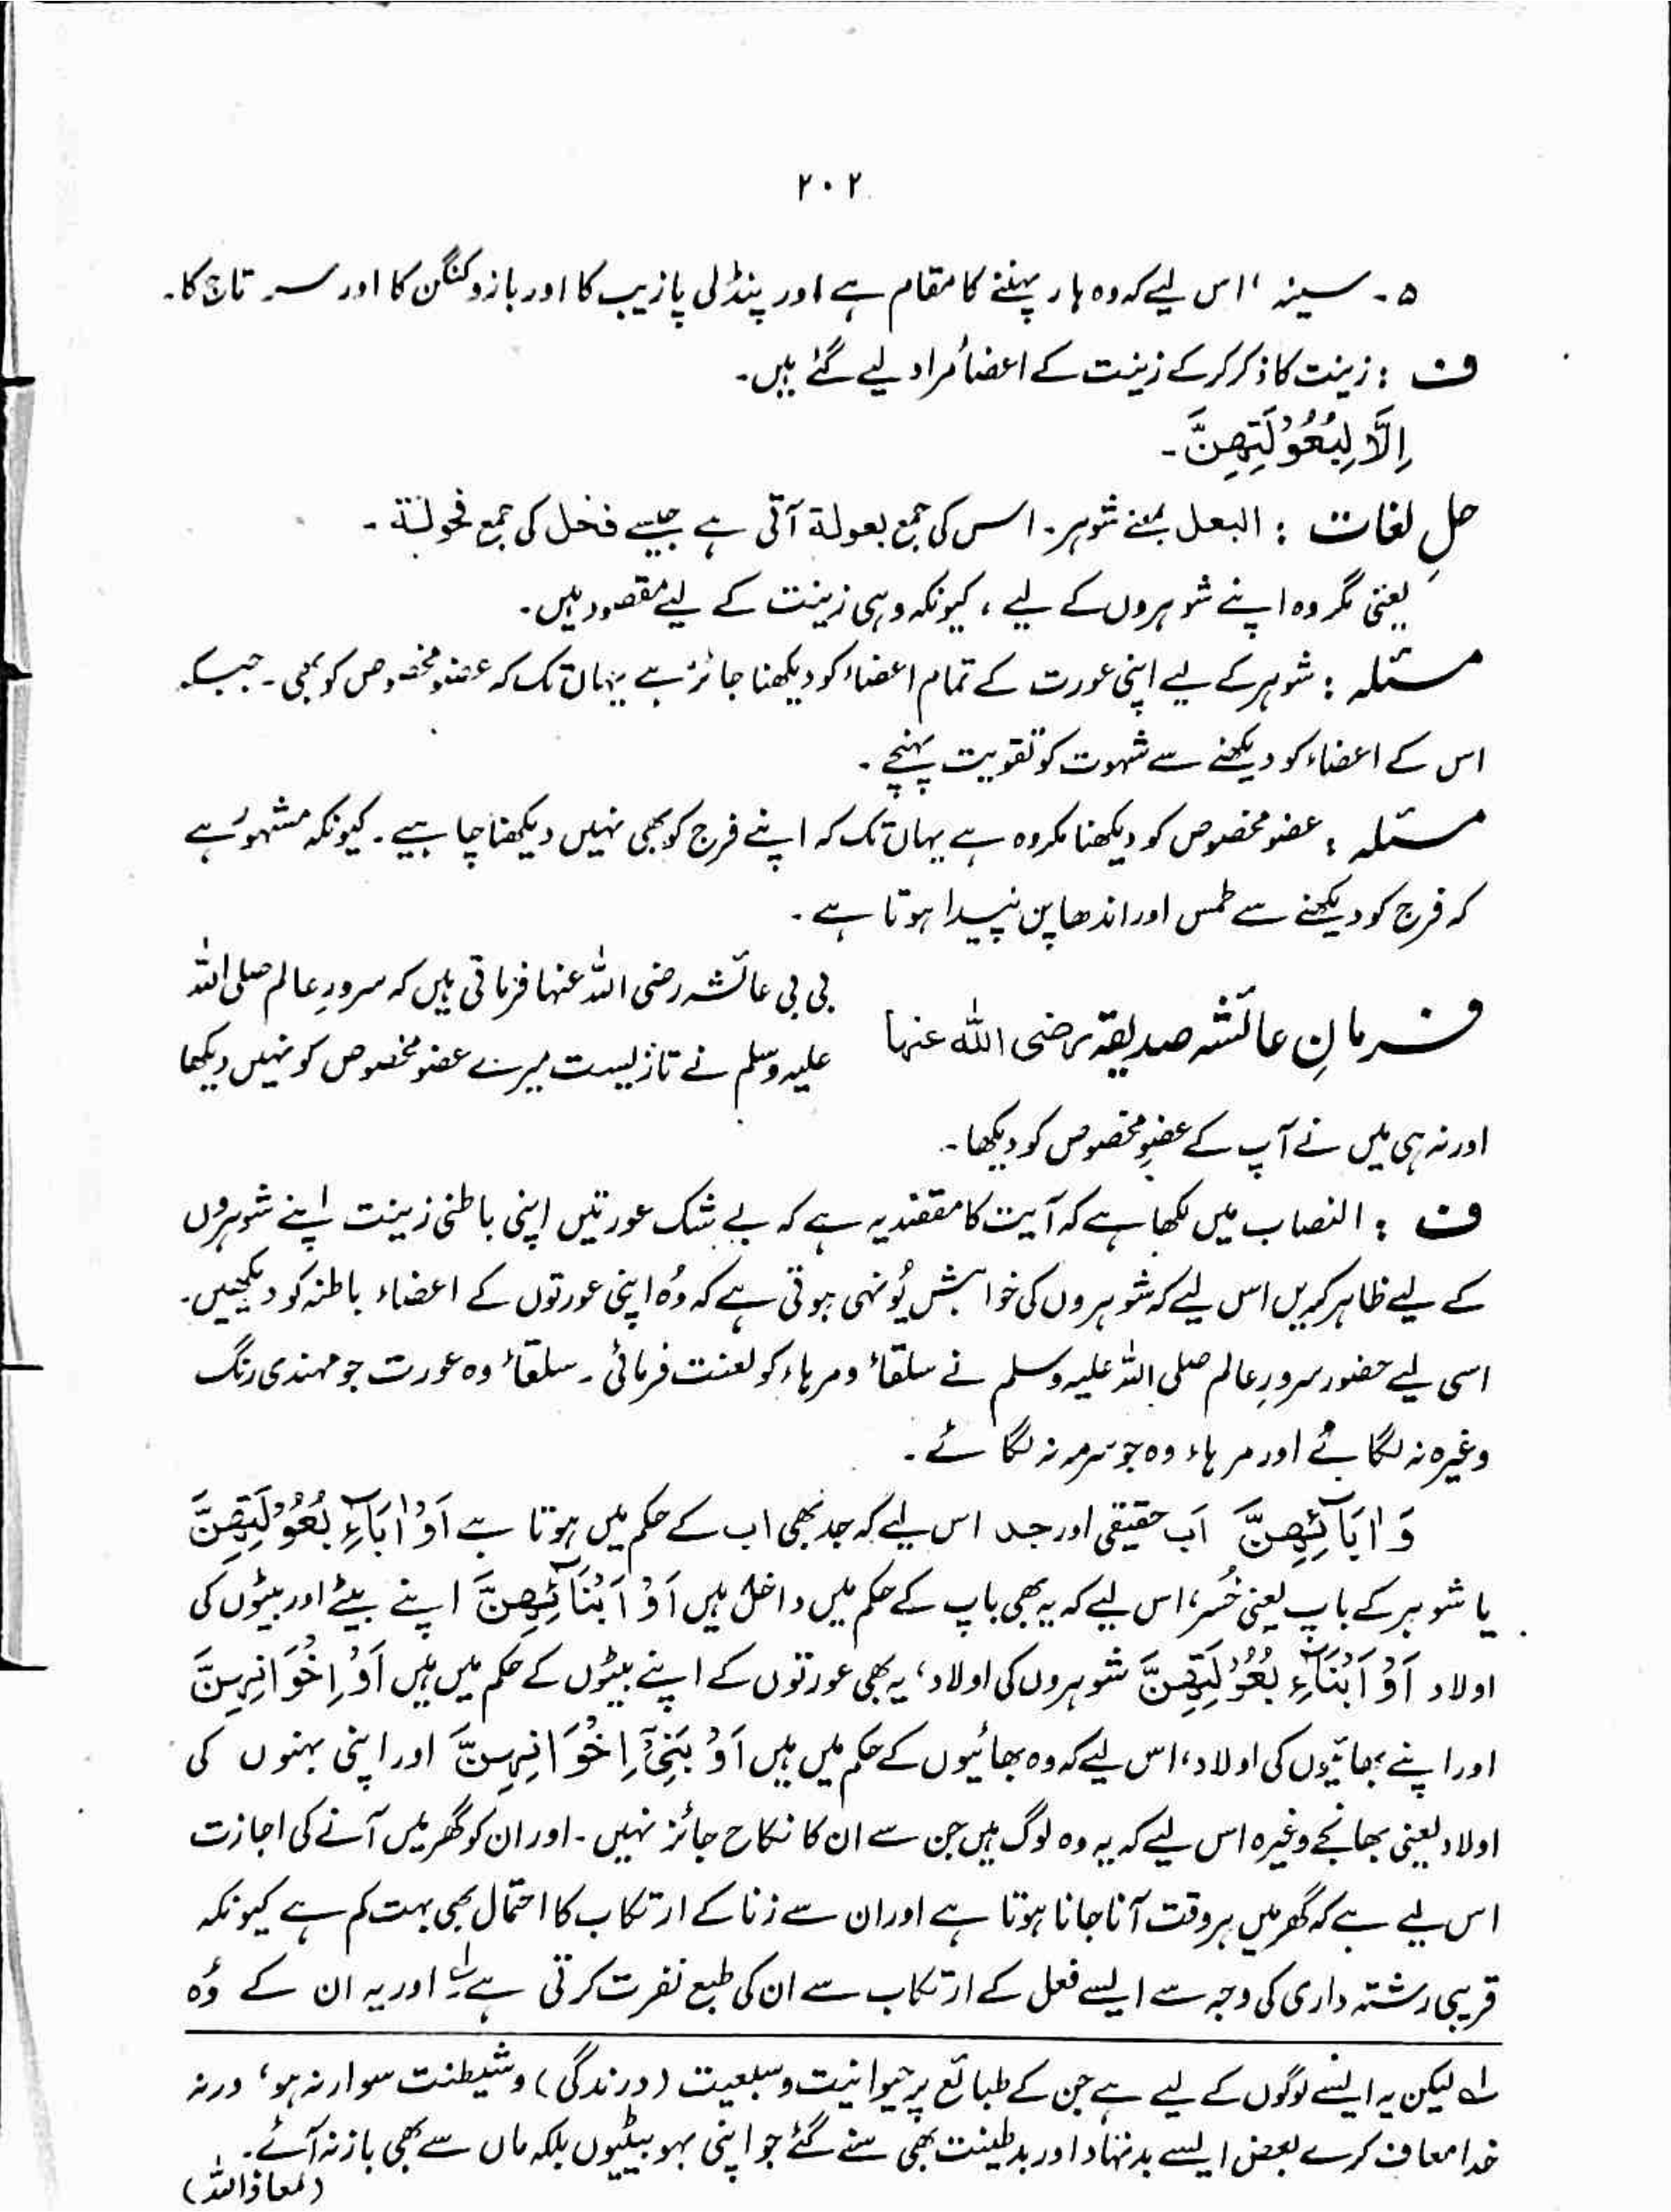 ۲۰۲
۵ - سینہ، اس لیے کہ وہ ہار پہننے کا مقام ہے اور پنڈلی پازیب کا اور بازو کنگن کا اور سر تاج کا۔
ف : زینت کا ذکر کرکے زینت کے اعضاء مراد لیے گئے ہیں۔
اِلَّا لِبُعُوْلَتِھِنَّ -
حلِ لغات : البعل بمعنے شوہر۔ اس کی جمع بعولة آتی ہے جیسے فحل کی جمع فحولة -
یعنی مگر وہ اپنے شوہروں کے لیے ، کیونکہ وہی زینت کے لیے مقصود ہیں۔
مسئلہ : شوہر کے لیے اپنی عورت کے تمام اعضاء کو دیکھنا جائز ہے یہاں تک کہ عضو مخصوص کو بھی۔ جبکہ
اس کے اعضاء کو دیکھنے سے شہوت کو تقویت پہنچے۔
مسئلہ : عضو مخصوص کو دیکھنا مکروہ ہے یہاں تک کہ اپنے فرج کو بھی نہیں دیکھنا چاہیے۔ کیونکہ مشہور ہے
کہ فرج کو دیکھنے سے طمس اور اندھا پن پیدا ہوتا ہے۔
فرمانِ عائشہ صدیقہ رضی اللہ عنہا
بی بی عائشہ رضی اللہ عنہا فرماتی ہیں کہ سرورِ عالم صلی اللہ
علیہ وسلم نے تازیست میرے عضو مخصوص کو نہیں دیکھا
اور نہ ہی میں نے آپ کے عضوِ مخصوص کو دیکھا۔
ف : النصاب میں لکھا ہے کہ آیت کا مقصد یہ ہے کہ بے شک عورتیں اپنی باطنی زینت اپنے شوہروں
کے لیے ظاہر کریں اس لیے کہ شوہروں کی خواہش یُونہی ہوتی ہے کہ وُہ اپنی عورتوں کے اعضاء باطنہ کو دیکھیں۔
اسی لیے حضور سرورِ عالم صلی اللہ علیہ وسلم نے سلقاء و مرہاء کو لعنت فرمائی۔ سلقاء وہ عورت جو مہندی رنگ
وغیرہ نہ لگائے اور مرہاء وہ جو سرمہ نہ لگائے۔
وَ اٰبَآئِھِنَّ اَب حقیقی اور جد اس لیے کہ جد بھی اب کے حکم میں ہوتا ہے اَوْ اٰبَآءِ بُعُوْلَتِھِنَّ
یا شوہر کے باپ یعنی خُسر، اس لیے کہ یہ بھی باپ کے حکم میں داخل ہیں اَوْ اَبْنَآئِھِنَّ اپنے بیٹے اور بیٹوں کی
اولاد اَوْ اَبْنَآءِ بُعُوْلَتِھِنَّ شوہروں کی اولاد، یہ بھی عورتوں کے اپنے بیٹوں کے حکم میں ہیں اَوْ اِخْوَانِہِنَّ
اور اپنے بھائیوں کی اولاد، اس لیے کہ وہ بھائیوں کے حکم میں ہیں اَوْ بَنِیْٓ اِخْوَانِہِنَّ اور اپنی بہنوں کی
اولاد یعنی بھانجے وغیرہ اس لیے کہ یہ وہ لوگ ہیں جن سے ان کا نکاح جائز نہیں۔ اور ان کو گھر میں آنے کی اجازت
اس لیے ہے کہ گھر میں ہر وقت آنا جانا ہوتا ہے اور ان سے زنا کے ارتکاب کا احتمال بھی بہت کم ہے کیونکہ
قریبی رشتہ داری کی وجہ سے ایسے فعل کے ارتکاب سے ان کی طبع نفرت کرتی ہے ۱؎ اور یہ ان کے وُہ
۱؎ لیکن یہ ایسے لوگوں کے لیے ہے جن کے طبائع پر حیوانیت و سبعیت (درندگی) و شیطنت سوار نہ ہو، ورنہ
خدا معاف کرے بعض ایسے بدنہاد اور بدطینت بھی سنے گئے جو اپنی بہو بیٹیوں بلکہ ماں سے بھی باز نہ آئے۔
(معاذ اللہ)